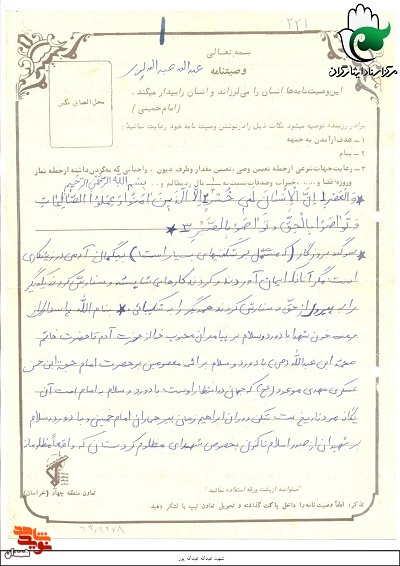 ۲۲۱
مرکز اسناد ایثارگران
بسمه تعالی
وصیتنامه عبدالله عبدالله پور
محل الصاق عکس
این وصیت‌نامه‌ها انسان را می‌لرزاند و انسان را بیدار میکند.
(امام خمینی)
برادر رزمنده توصیه میشود نکات ذیل را در نوشتن وصیت نامه خود رعایت نمائید:
۱ - هدف از آمدن به جبهه
۲ - پیام
۳ - رعایت جهات شرعی از جمله تعیین وصی، تعیین مقدار وظرف دیون، واجباتی که به گردن داشته از جمله نماز
روزه قضا و .... خیرات و صدقات نسبت به ۱ مال رد مظالم و...
بسم الله الرحمن الرحیم
والعصر ان الانسان لفی خسر الا الذین آمنوا و عملوا الصالحات
و تواصوا بالحق و تواصوا بالصبر
سوگند به روزگار (که مشتمل بر شگفتیهای بسیار است) بیگمان آدمی در زیانکاری
است مگر آنانکه ایمان آوردند و کردند کارهای شایسته و سفارش کردند یکدیگر
را به پیروی از حق و سفارش کردند همدیگر را به شکیبائی بنام الله پاسدار
حرمت خون شهدا با درود و سلام بر پیامبران محبوب خدا از حضرت آدم تا حضرت خاتم
محمد ابن عبدالله (ص) با درود و سلام بر ائمه معصومین بر حضرت امام حجه ابن حسن
عسکری مهدی موعود (عج) که جهان در انتظار اوست با درود و سلام به امام امت آن
یگانه مرد تاریخ بت شکن دوران ابراهیم زمان پیر جماران امام خمینی و با درود و سلام
بر شهیدان از صدر اسلام تا کنون بخصوص شهدای مظلوم کردستان که واقعاً مظلومانه
تعاون منطقه جهاد (خراسان)
میتوانید از پشت ورقه استفاده نمائید
تذکر: لطفاً وصیت نامه را داخل پاکت گذاشته و تحویل تعاون تیپ یا لشگر دهید
نوید شاهد
همدان
شهید عبدالله عبدالله پور